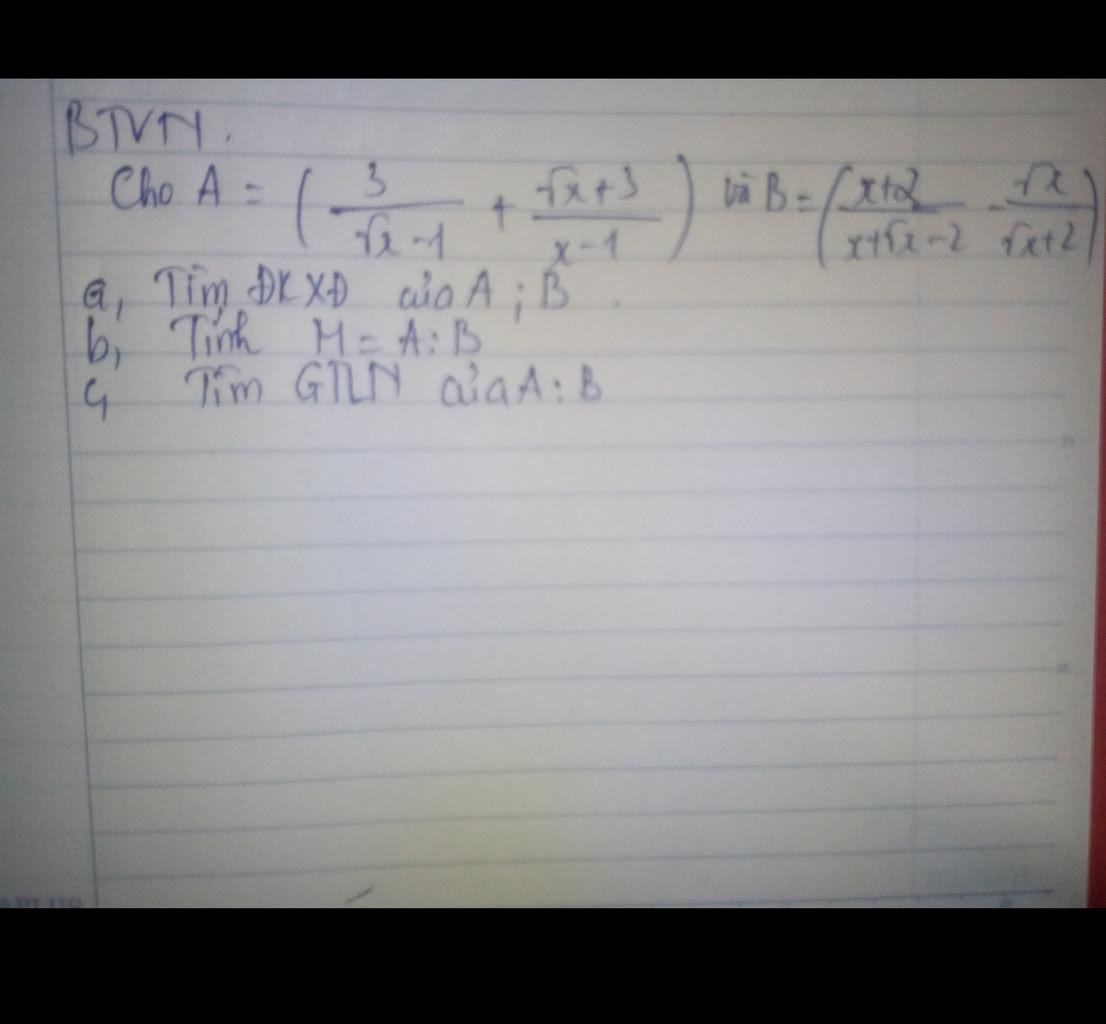 BTVN.
Cho A = ( 3/(√x-1) + (√x+3)/(x-1) ) và B = ( (x+2)/(x+√x-2) - √x/(√x+2) )
a, Tìm ĐKXĐ của A ; B.
b, Tính M = A : B
c, Tìm GTLN của A : B